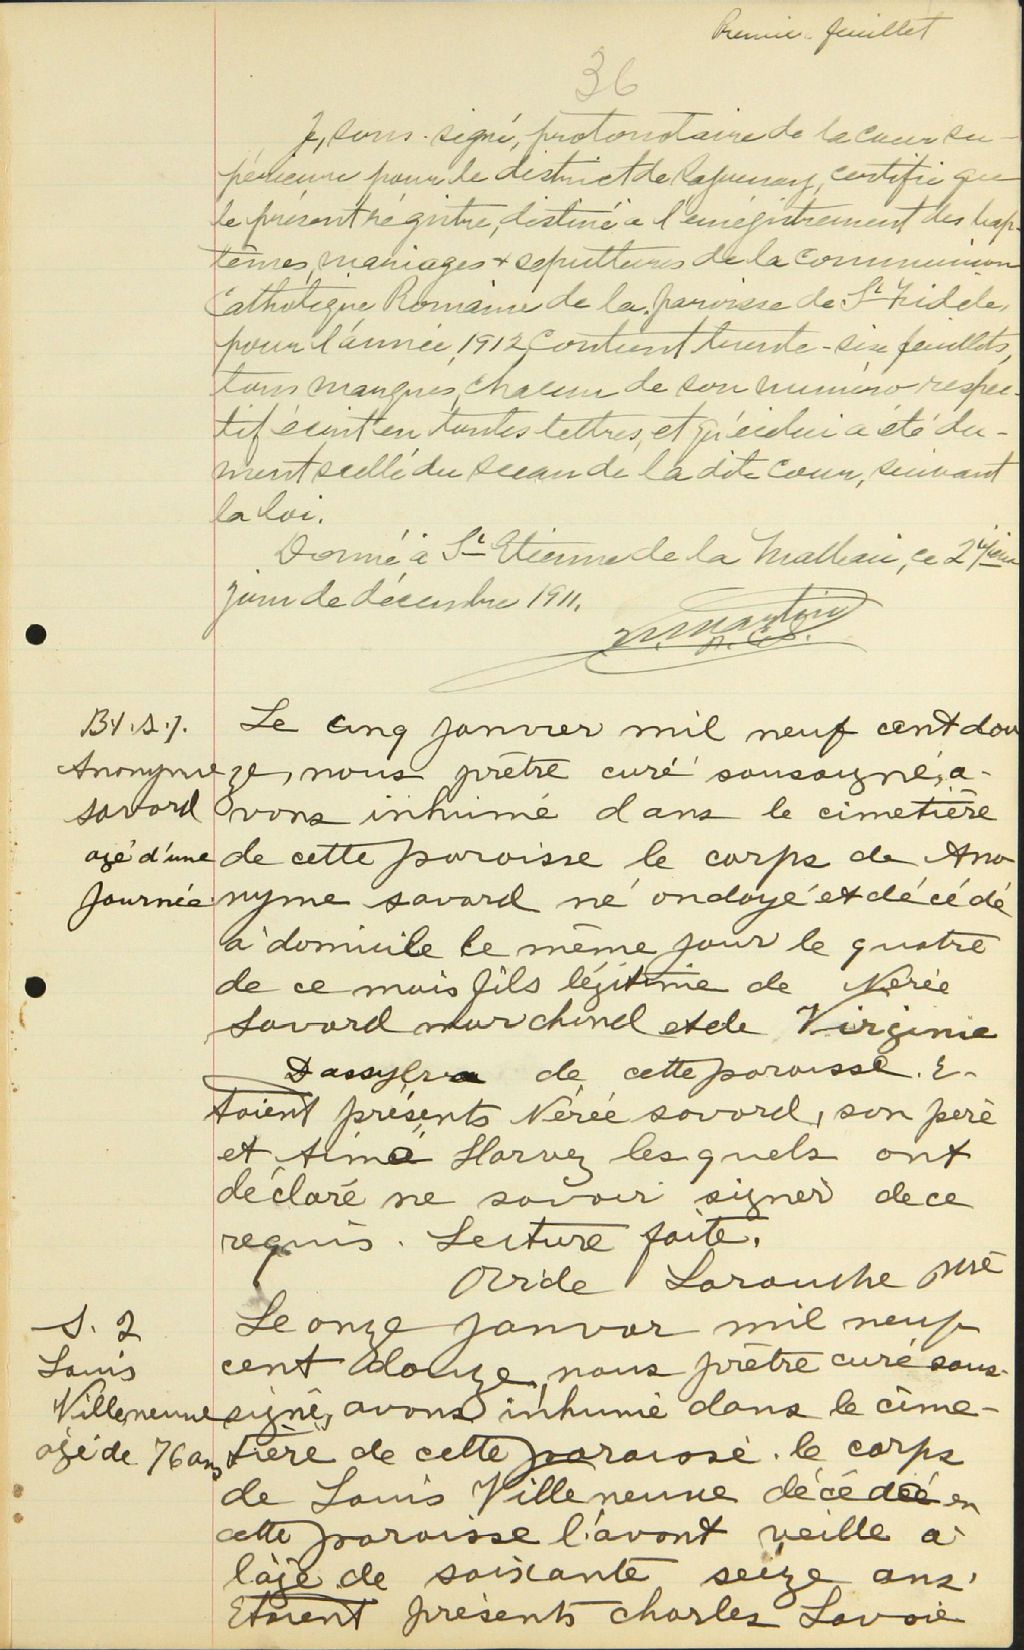 Premier feuillet
36
Je, sous-signé, protonotaire de la cour su-
périeure pour le district de Saguenay, certifie que
le présent régistre, destiné a l'enrégistrement des bap-
têmes, mariages & sepultures de la Communion
Catholique Romaine de la paroisse de St Fidèle,
pour l'année 1912, Contient trente-six feuillets,
tous marqués, chacun de son numéro respec-
tif écrit en toutes lettres, et qu'icelui a été du-
ment scellé du sceau de la dite Cour, suivant
la loi.
Donné à St Etienne de la Malbaie, ce
jour de décembre 1911.
B. 1. S. 1.
Anonyme
savard
agé d'une
journée
Le cinq janvier mil neuf cent dou
ze, nous prêtre curé soussigné, a-
vons inhumé dans le cimetière
de cette paroisse le corps de Ano
nyme savard né ondoyé et décédé
a domicile le même jour le quatre
de ce mois fils légitime de Nérée
Savard marchand et de Virginie
Dassylva de cette paroisse. E-
taient présents Nérée savard, son père
et Aimé Harvey lesquels ont
déclaré ne savoir signer de ce
requis. Lecture faite.
Ovide Larouche ptre
S. 2
Louis
Villeneuve
agé de 76 ans
Le onze janvier mil neuf
cent douze, nous prêtre curé sous-
signé, avons inhumé dans le cime-
tière de cette paroisse. le corps
de Louis Villeneuve décédé en
cette paroisse l'avant veille a
l'age de soixante seize ans.
Etaient présents charles Lavoie